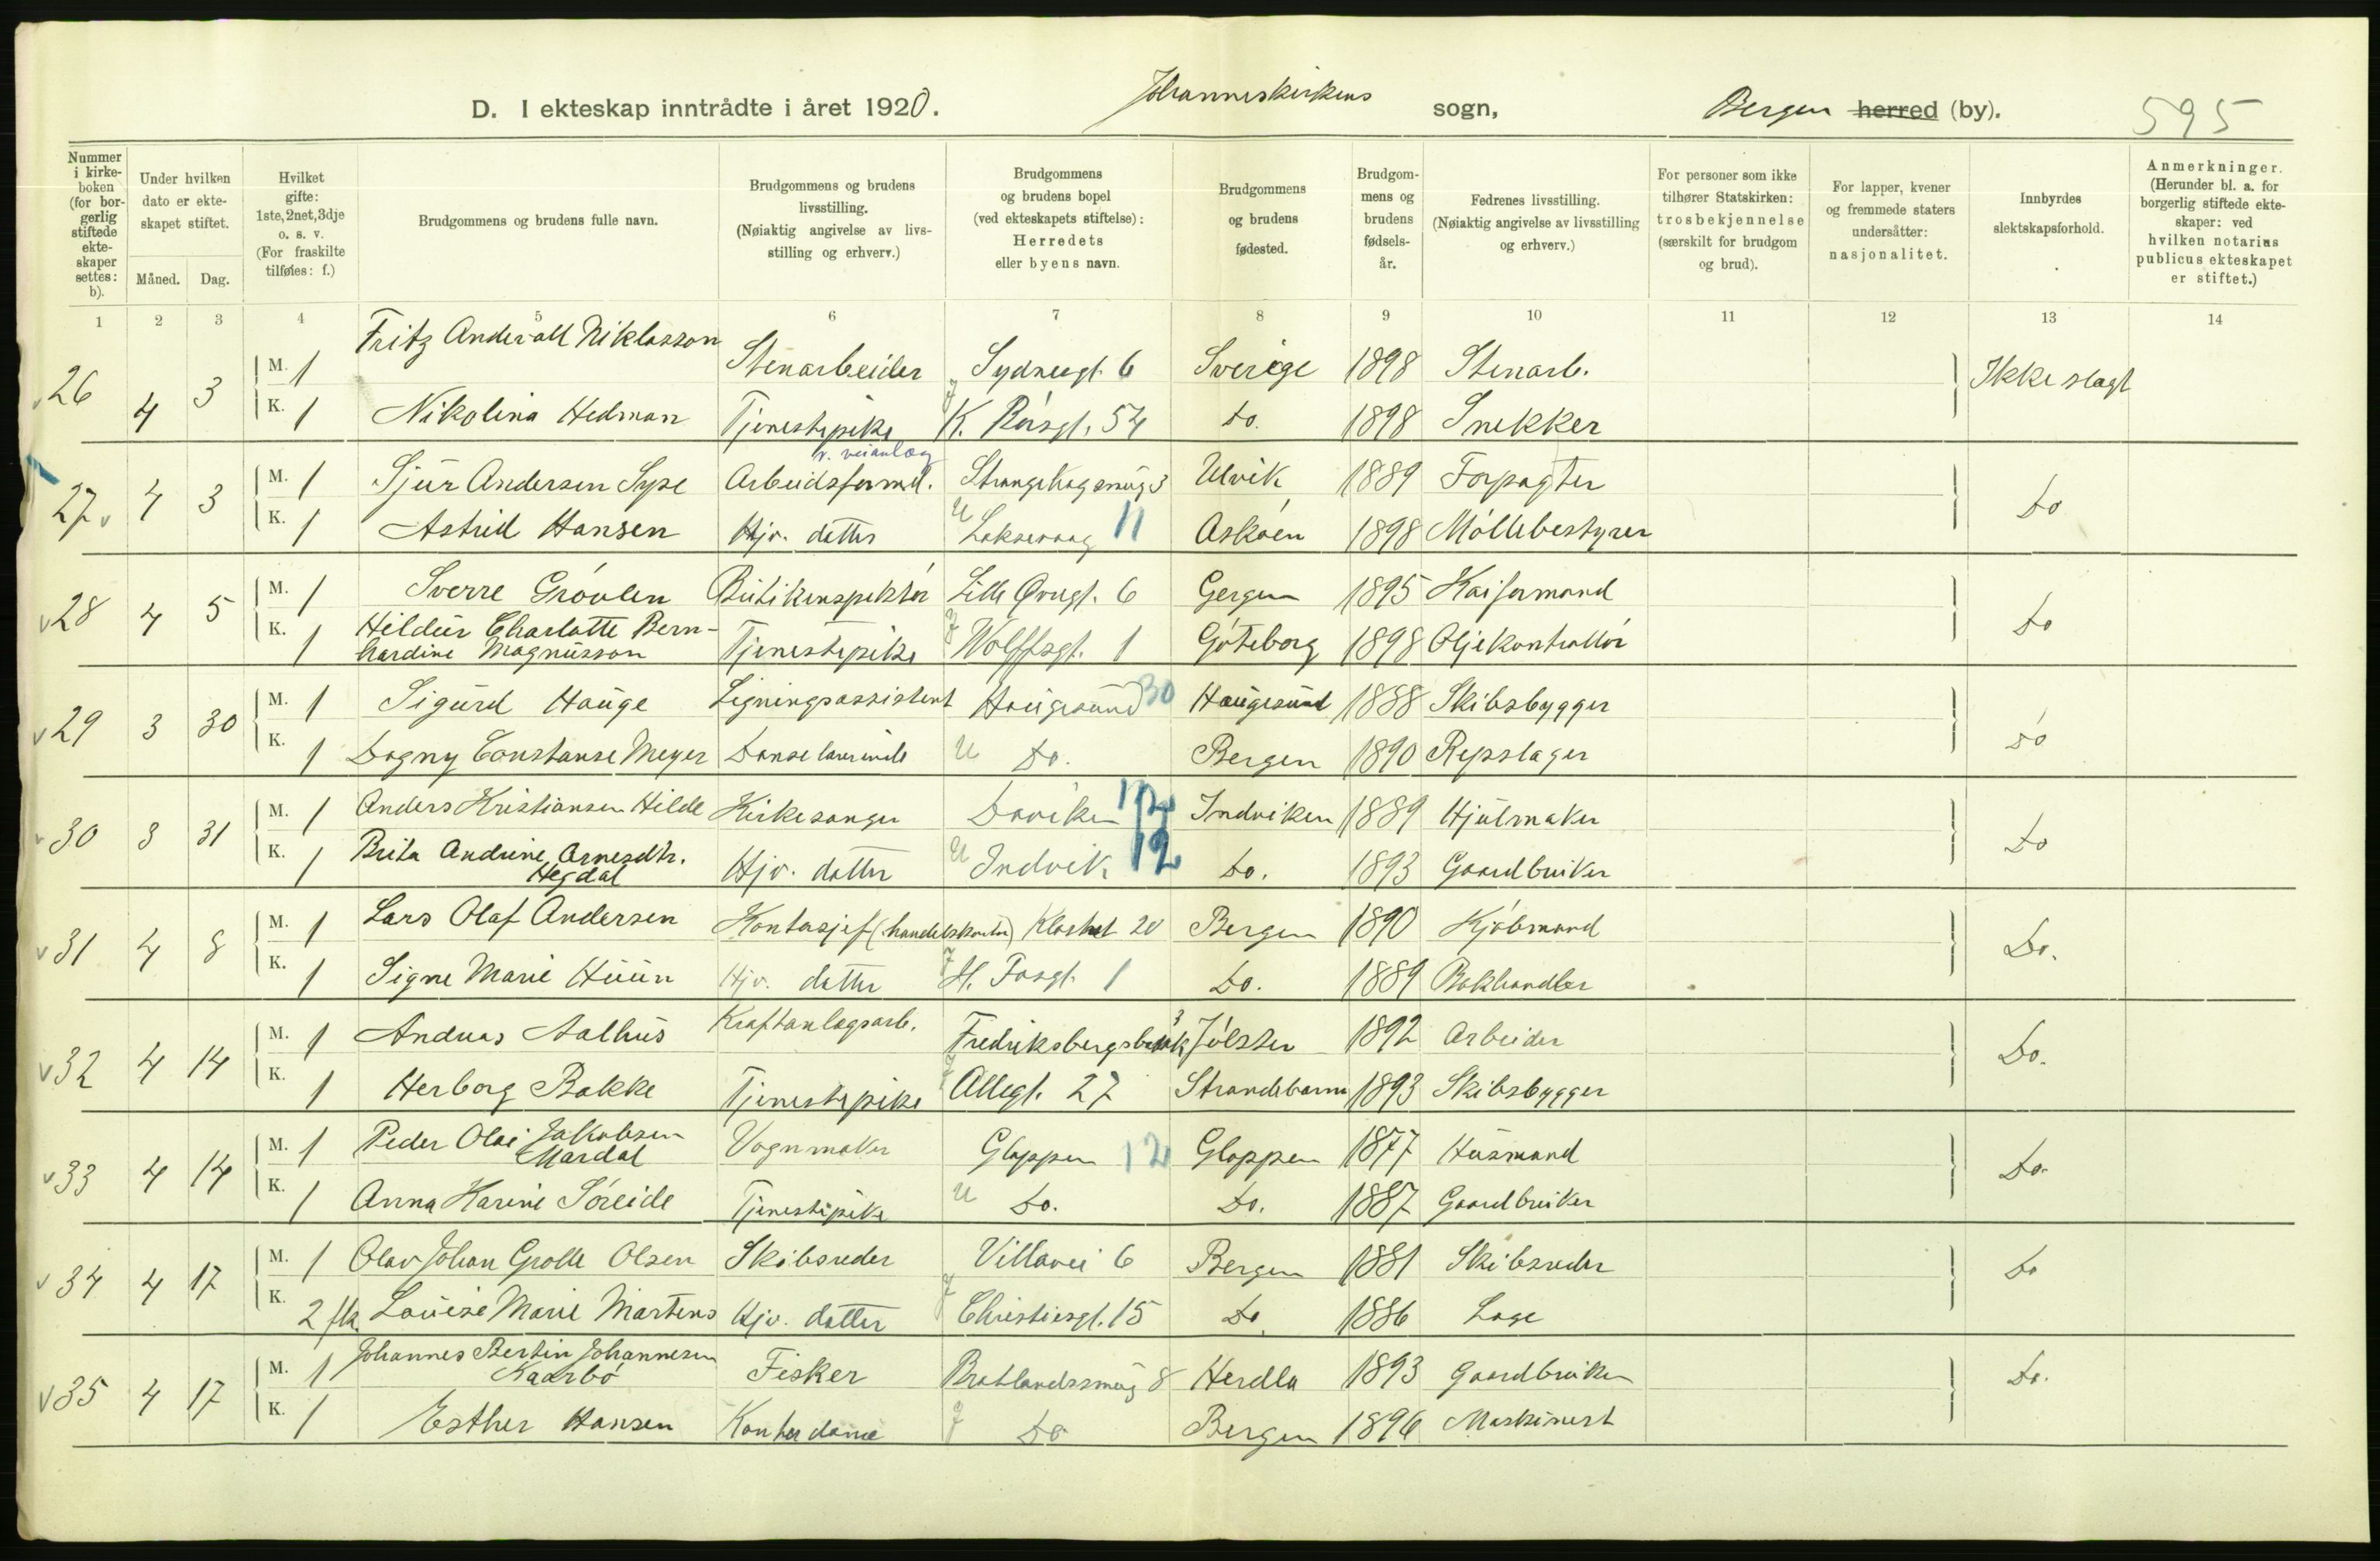 D. I ekteskap inntrådte i året 1920. Johanneskirkens sogn, Bergen herred (by). 595
Nummer i kirkeboken (for borgerlig stiftede ekteskaper settes: b).
Under hvilken dato er ekteskapet stiftet.
Måned. Dag.
Hvilket gifte: 1ste, 2net, 3dje o. s. v. (For fraskilte tilføies: f.)
Brudgommens og brudens fulle navn.
Brudgommens og brudens livsstilling. (Nøiaktig angivelse av livsstilling og erhverv.)
Brudgommens og brudens bopel (ved ekteskapets stiftelse): Herredets eller byens navn.
Brudgommens og brudens fødested.
Brudgommens og brudens fødselsår.
Fedrenes livsstilling. (Nøiaktig angivelse av livsstilling og erhverv.)
For personer som ikke tilhører Statskirken: trosbekjennelse (særskilt for brudgom og brud).
For lapper, kvener og fremmede staters undersåtter: nasjonalitet.
Innbyrdes slektskapsforhold.
Anmerkninger. (Herunder bl. a. for borgerlig stiftede ekteskaper: ved hvilken notarius publicus ekteskapet er stiftet.)
1 2 3 4 5 6 7 8 9 10 11 12 13 14
26 4 3 M. 1 Fritz Niklasson Stenarbeider Sydnesgt. 6 Sverige 1898 Stenarb. Ikke slagt
K. 1 Nikolina Hedman Tjenestepike 54 Do. 1898 Snekker
v. veianlæg
27 4 3 M. 1 Sjur Andersen Sype Arbeidsformd. Strangehagsmug 3 Ulvik 1889 Forpagter Do
K. 1 Astrid Hansen Hjv. datter U Laksevaag 11 Askøen 1898 Möllebestyrer
28 4 5 M. 1 Sverre Grövlen Butikinspektör Lille Øvregt. 6 Gergen 1895 Kaiformand Do
K. 1 Hildur Charlotte Bernhardine Magnusson Tjenestepike Wolffsgt. 1 Göteborg 1898 Oljekontrollör
29 3 30 M. 1 Sigurd Hauge Ligningsassistent Haugesund 30 Haugesund 1888 Skibsbygger Do
K. 1 Dagny Constanse Meyer Danselærerinde U Do. Bergen 1890 Repslager
30 3 31 M. 1 Anders Kristiansen Hilde Kirkesanger Daviken 12 Indviken 1889 Hjulmaker Do
K. 1 Brita Andrine Arnesdtr. Hegdal Hjv. datter U Indvik 12 Do. 1893 Gaardbruker
31 4 8 M. 1 Lars Olaf Andersen Kontorsjef (handelskontor) Klostret 20 Bergen 1890 Kjöbmand Do.
K. 1 Signe Marie Huun Hjv. datter H. Fosgt. 1 Do. 1889 Bokhandler
32 4 14 M. 1 Andreas Aalhus Kraftanlægsarb. Fredriksbergsbak 3 Jölster 1892 Arbeider Do.
K. 1 Herborg Bakke Tjenestepike Allegt. 27 Strandebarm 1893 Skibsbygger
33 4 14 M. 1 Peder Olai Jakobsen Mardal Vognmaker Gloppen 12 Gloppen 1877 Husmand Do.
K. 1 Anna Karine Söreide Tjenestepike U Do. Do. 1887 Gaardbruker
34 4 17 M. 1 Olav Johan Grolle Olsen Skibsreder Villavei 6 Bergen 1881 Skibsreder Do
K. 2 Louise Marie Martens Hjv. datter Christiesgt. 15 Do. 1886 Læge
35 4 17 M. 1 Johannes Bertin Johannesen Kaarbö Fisker Bratlandssmug 8 Herdla 1893 Gaardbruker Do.
K. 1 Esther Hansen Kontordame Do Bergen 1896 Maskinest